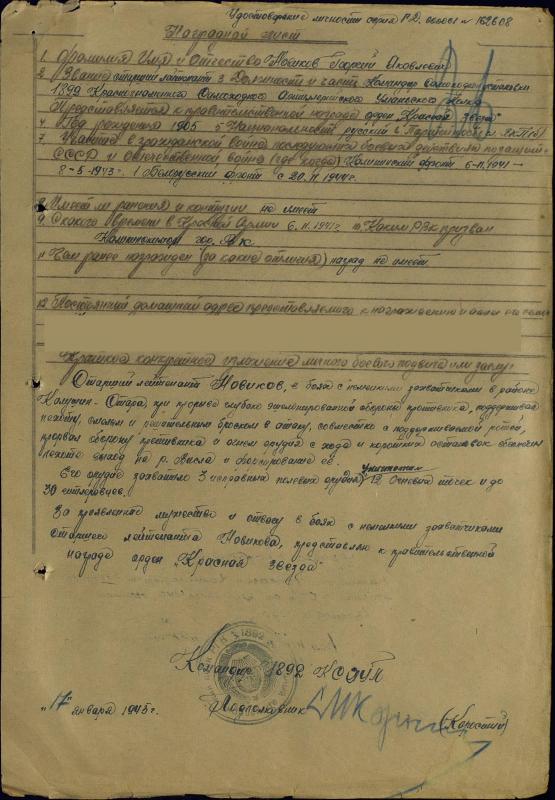 Удостоверение личности серия РД. 000001 № 162608
Наградной лист
1. Фамилия Имя и Отчество Новиков Георгий Яковлевич
2 Звание старший лейтенант 3 Должность и часть Командир самоходной установки
1892 Краснознаменного Самоходного Артиллерийского Уманского Полка
Представляется к правительственной награде орден "Красная Звезда"
4. Год рождения 1905 5 Национальность русский 6 Партийность
7. Участие в гражданской войне последующих боевых действиях по защите
СССР и Отечественной войне (где когда) Калининский фронт 6-11-1941-
8-5-1943. 1 Белорусский фронт с 20.11.1944г.
8. Имеет ли ранения и контузии не имеет
9. С какого времени в Красной Армии 6.11.1941г 10. Каким РВК призван
РВК.
11 Чем ранее награжден (за какие отличия) наград не имеет
12. Постоянный домашний адрес представляемого к награждению и адрес его семьи
Краткое конкретное изложение личного боевого подвига или заслуг:
Старший лейтенант Новиков, в боях с немецкими захватчиками в районе
при прорыве глубоко эшелонированной обороны противника, поддерживая
пехоту, смелым и решительным броском в атаку, совместно с поддерживаемой ротой,
прорвал оборону противника и огнем орудия с хода и коротких остановок обеспечил
пехоте выход на р. Висла и форсирование её.
Его орудие захватило 3 исправных полевых орудия, уничтожили 12 огневых точек и до
30 гитлеровцев.
За проявленное мужество и отвагу в боях с немецкими захватчиками
старшего лейтенанта Новикова, представляю к правительственной
награде орден "Красная звезда"
Командир 1892 КСАУП
"17" января 1945г. Подполковник
1892